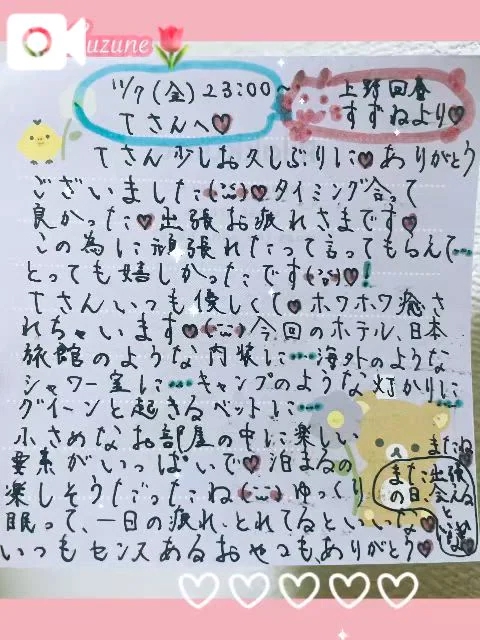 Suzune
11/7(金)23:00~
Tさんへ♡
上野回春
すずねより♡
Tさん少しお久しぶりに♡ありがとう
ございました(¨̮)♡タイミング合って
良かった♡出張お疲れさまです♡
この為に頑張れたって言ってもらえて…
とっても嬉しかったです(¨̮)♡!
Tさんいつも優しくて♡ホワホワ癒さ
れちゃいます♡(¨̮)/今回のホテル、日本
旅館のような内装に…海外のような
シャワー室に…キャンプのような灯かりに
グイーンと起きるベットに…
小さめなお部屋の中に楽しい
要素がいっぱいで♡泊まるの
楽しそうだったね(¨̮)♡ゆっくり
眠って、一日の疲れ、とれてるといいな♡
いつもセンスあるおやつも、ありがとう♡
またね
また出張
の日、会える
と